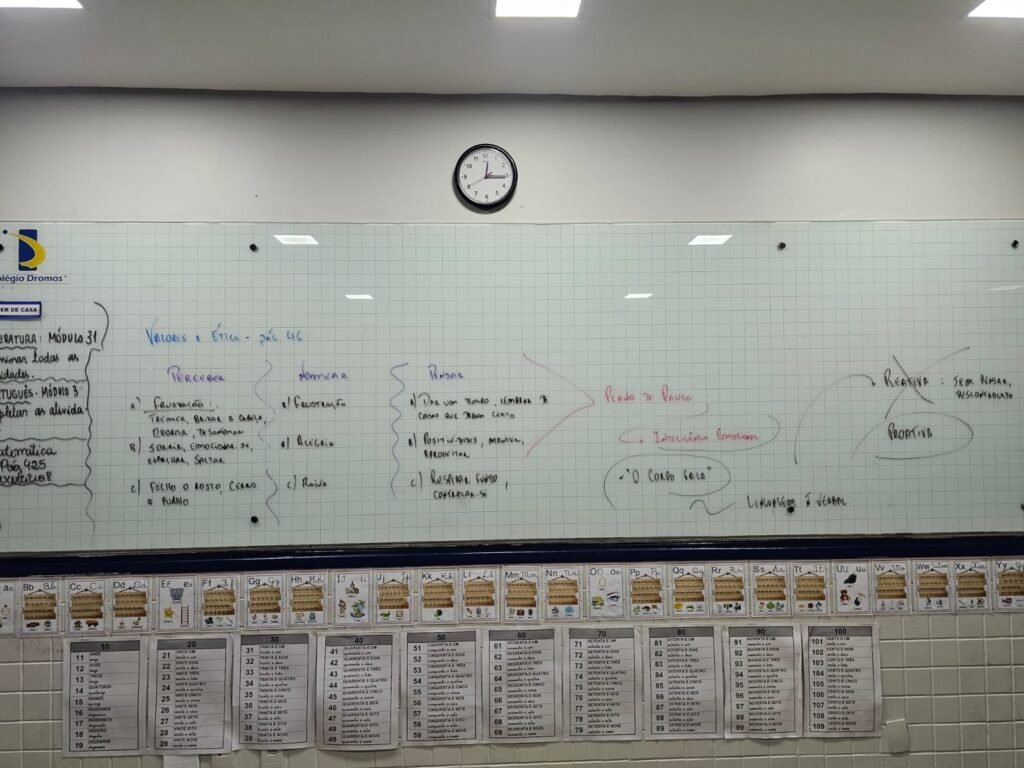 12
Colégio Dromos
ER DE CASA
ERATURA: MÓDULO 31
minar todas as
idades.
TUGUÊS - MÓDULO 3
pletar as ativida
atemática
Pág 425
exercício 8
VALORES E ÉTICA - PÁG 46
PERCEBER
NOMEAR
PENSAR
a) FRUSTRAÇÃO:
TREMER, BAIXAR A CABEÇA,
CHORAR, DESANIMAR
B) SORRIR, EMOCIONAR-SE,
ESPALHAR, SALTAR
C) FECHO O ROSTO, CERRO
O PUNHO
a) FRUSTRAÇÃO
B) ALEGRIA
C) RAIVA
A) DAR UM TEMPO, LEMBRAR DE
COISAS QUE DERAM CERTO
B) POSITIVIDADES, MANTER,
APROVEITAR
C) RESPIRAR FUNDO,
CONTROLAR-SE
PLANO DE PAUSA
INTELIGÊNCIA EMOCIONAL
"O CORPO FALA"
LINGUAGEM Ñ VERBAL
REATIVA: SEM PENSAR,
DESCONTROLADO
PROATIVA
Bb Cc Dd Ee Ff Gg Hh Ii Jj Kk Ll Mm Nn Oo Pp Qq Rr Ss Tt Uu Vv Ww Xx Yy
10 20 30 40 50 60 70 80 90 100
11 ONZE
12 DOZE
13 TREZE
14 QUATORZE
15 QUINZE
16 DEZESSEIS
17 DEZESSETE
18 DEZOITO
19 DEZENOVE
21 VINTE E UM
22 VINTE E DOIS
23 VINTE E TRÊS
24 VINTE E QUATRO
25 VINTE E CINCO
26 VINTE E SEIS
27 VINTE E SETE
28 VINTE E OITO
29 VINTE E NOVE
31 TRINTA E UM
32 TRINTA E DOIS
33 TRINTA E TRÊS
34 TRINTA E QUATRO
35 TRINTA E CINCO
36 TRINTA E SEIS
37 TRINTA E SETE
38 TRINTA E OITO
39 TRINTA E NOVE
41 QUARENTA E UM
42 QUARENTA E DOIS
43 QUARENTA E TRÊS
44 QUARENTA E QUATRO
45 QUARENTA E CINCO
46 QUARENTA E SEIS
47 QUARENTA E SETE
48 QUARENTA E OITO
49 QUARENTA E NOVE
51 CINQUENTA E UM
52 CINQUENTA E DOIS
53 CINQUENTA E TRÊS
54 CINQUENTA E QUATRO
55 CINQUENTA E CINCO
56 CINQUENTA E SEIS
57 CINQUENTA E SETE
58 CINQUENTA E OITO
59 CINQUENTA E NOVE
61 SESSENTA E UM
62 SESSENTA E DOIS
63 SESSENTA E TRÊS
64 SESSENTA E QUATRO
65 SESSENTA E CINCO
66 SESSENTA E SEIS
67 SESSENTA E SETE
68 SESSENTA E OITO
69 SESSENTA E NOVE
71 SETENTA E UM
72 SETENTA E DOIS
73 SETENTA E TRÊS
74 SETENTA E QUATRO
75 SETENTA E CINCO
76 SETENTA E SEIS
77 SETENTA E SETE
78 SETENTA E OITO
79 SETENTA E NOVE
81 OITENTA E UM
82 OITENTA E DOIS
83 OITENTA E TRÊS
84 OITENTA E QUATRO
85 OITENTA E CINCO
86 OITENTA E SEIS
87 OITENTA E SETE
88 OITENTA E OITO
89 OITENTA E NOVE
91 NOVENTA E UM
92 NOVENTA E DOIS
93 NOVENTA E TRÊS
94 NOVENTA E QUATRO
95 NOVENTA E CINCO
96 NOVENTA E SEIS
97 NOVENTA E SETE
98 NOVENTA E OITO
99 NOVENTA E NOVE
101 CENTO E UM
102 CENTO E DOIS
103 CENTO E TRÊS
104 CENTO E QUATRO
105 CENTO E CINCO
106 CENTO E SEIS
107 CENTO E SETE
108 CENTO E OITO
109 CENTO E NOVE